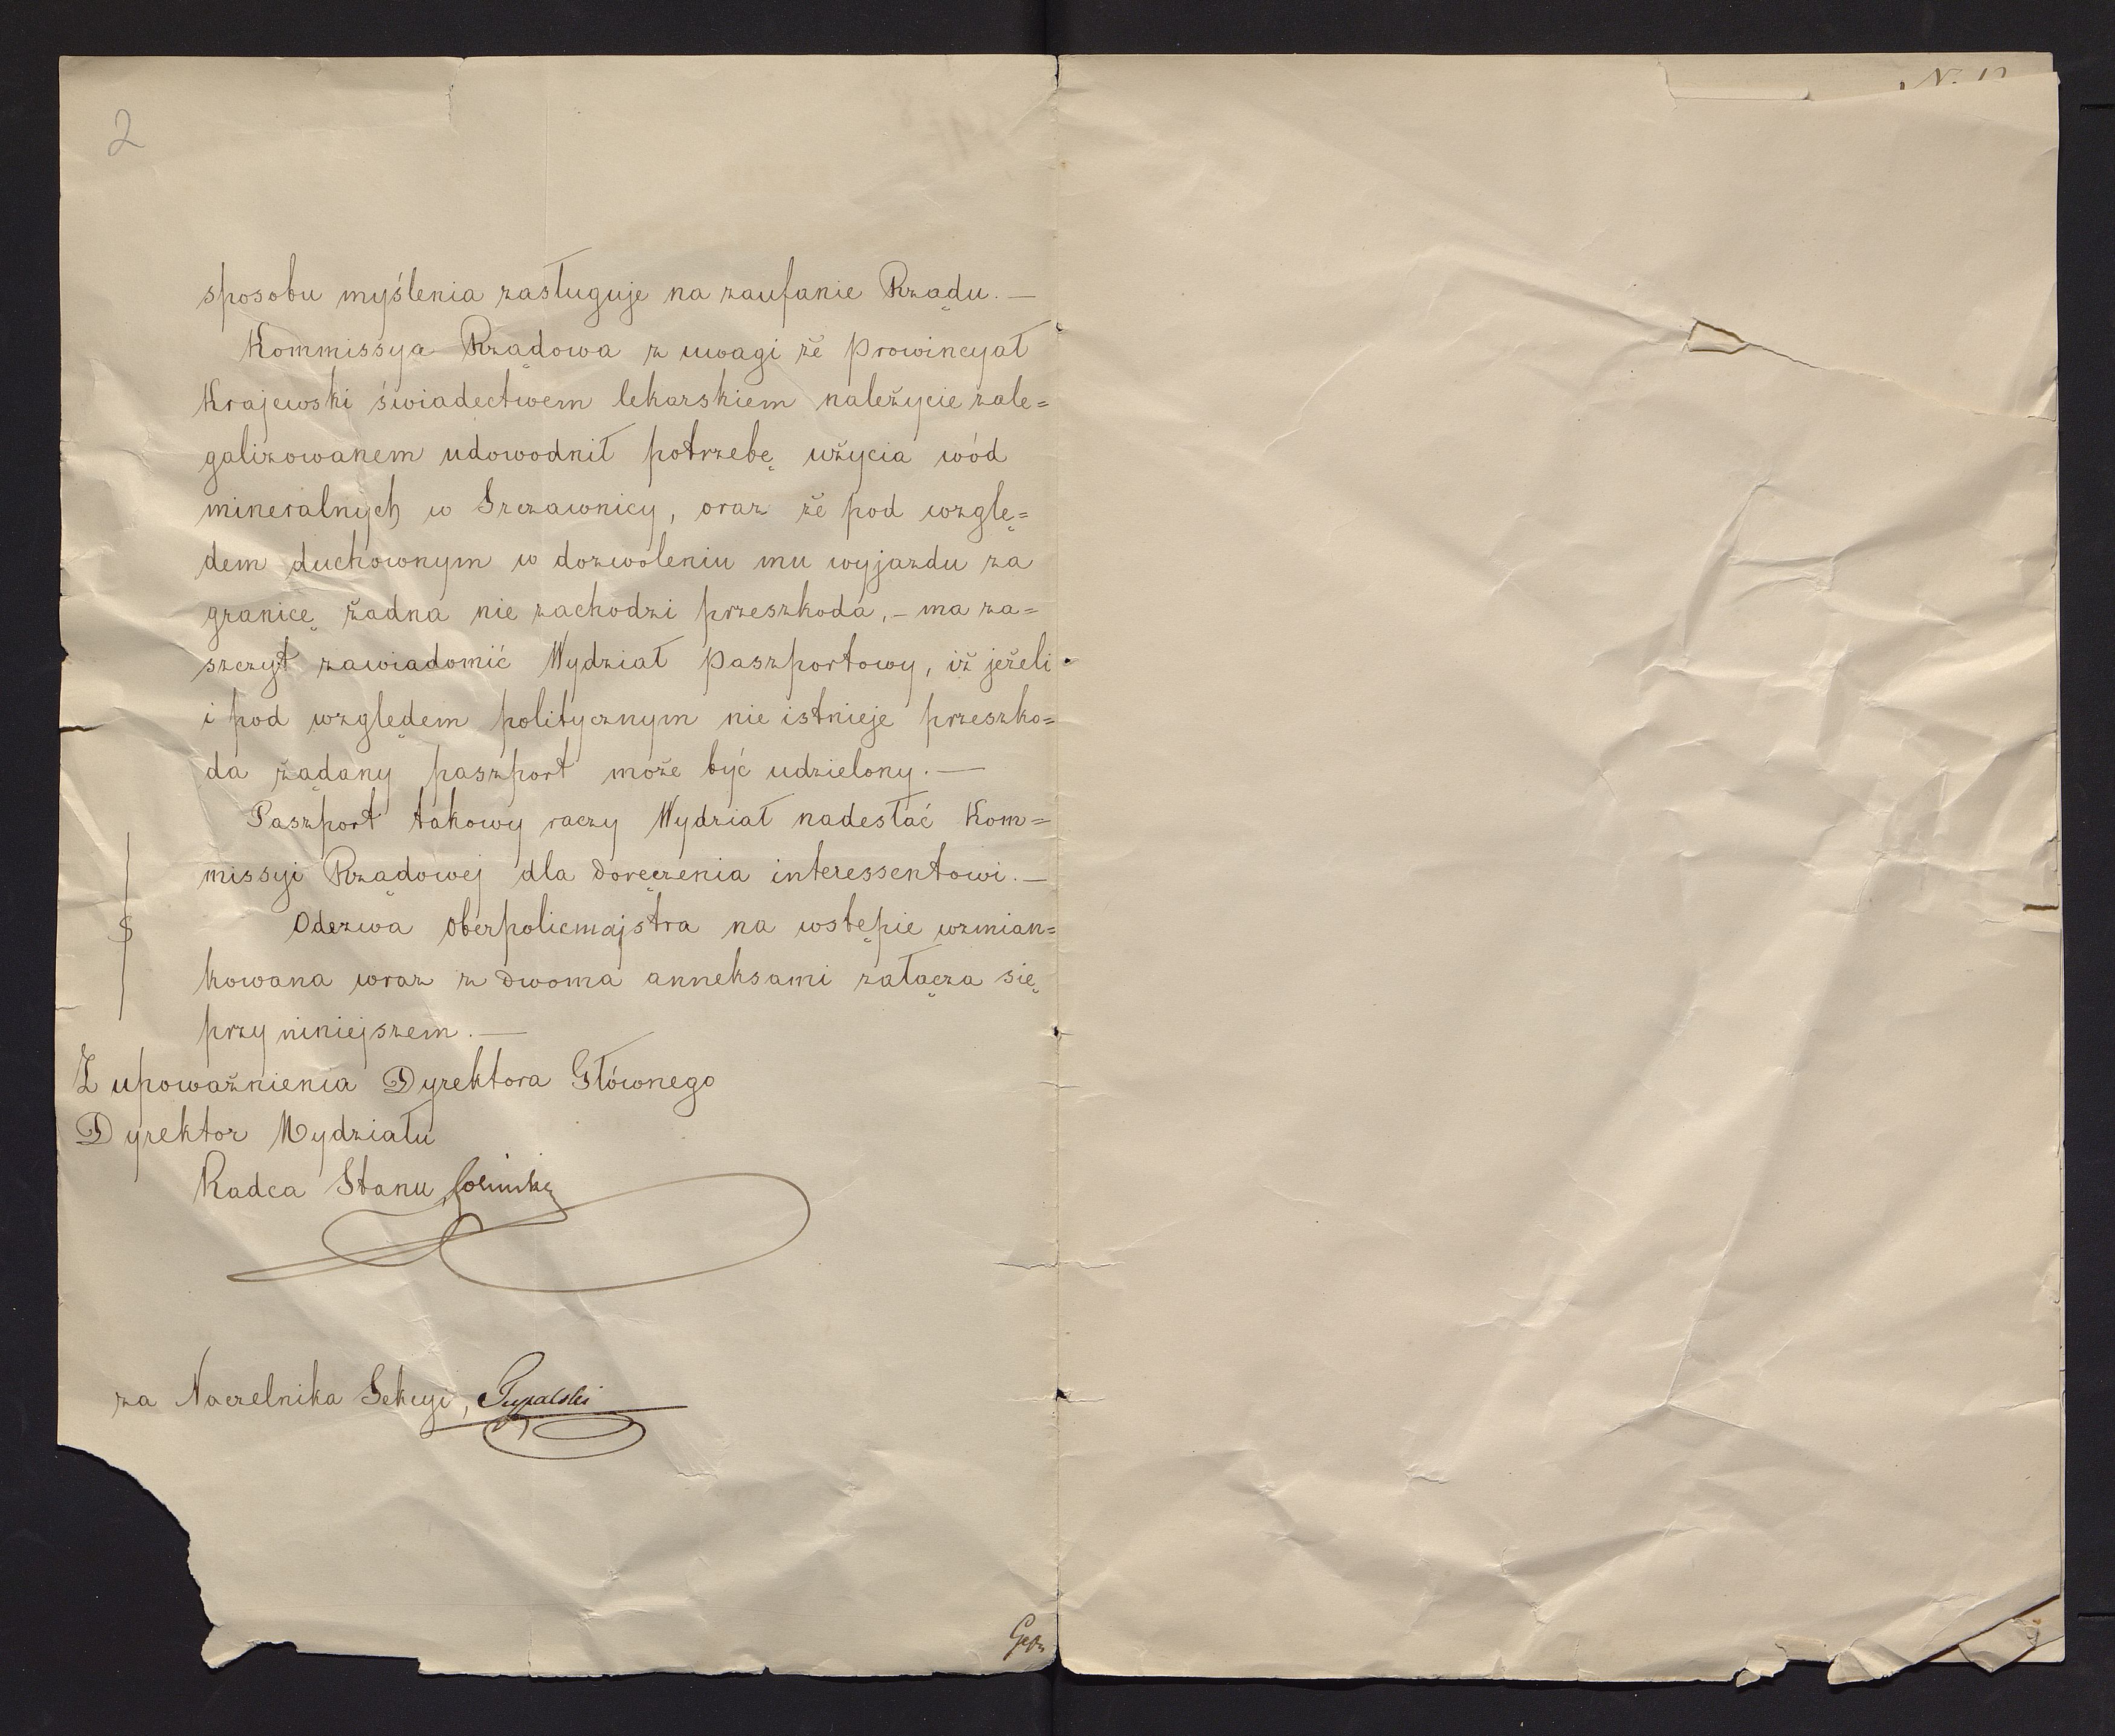 2
sposobu myślenia zasługuje na zaufanie Rządu. —
Kommissya Rządowa z uwagi że Prowincyał
Krajewski świadectwem lekarskiem należycie zale=
galizowanem udowodnił potrzebę użycia wód
mineralnych w Szczawnicy, oraz że pod wzglę=
dem duchownym w dozwoleniu mu wyjazdu za
granicę żadna nie zachodzi przeszkoda, — ma za=
szczyt zawiadomić Wydział Paszportowy, iż jeżeli
i pod względem politycznym nie istnieje przeszko=
da żądany paszport może być udzielony. —
Paszport takowy raczy Wydział nadesłać Kom=
missyi Rządowej dla doręczenia interessentowi. —
Odezwa Oberpolicmajstra na wstępie wzmian=
kowana wraz z dwoma anneksami załącza się
przy niniejszem. —
Z upoważnienia Dyrektora Głównego
Dyrektor Wydziału
Radca Stanu
za Naczelnika Sekcyi,